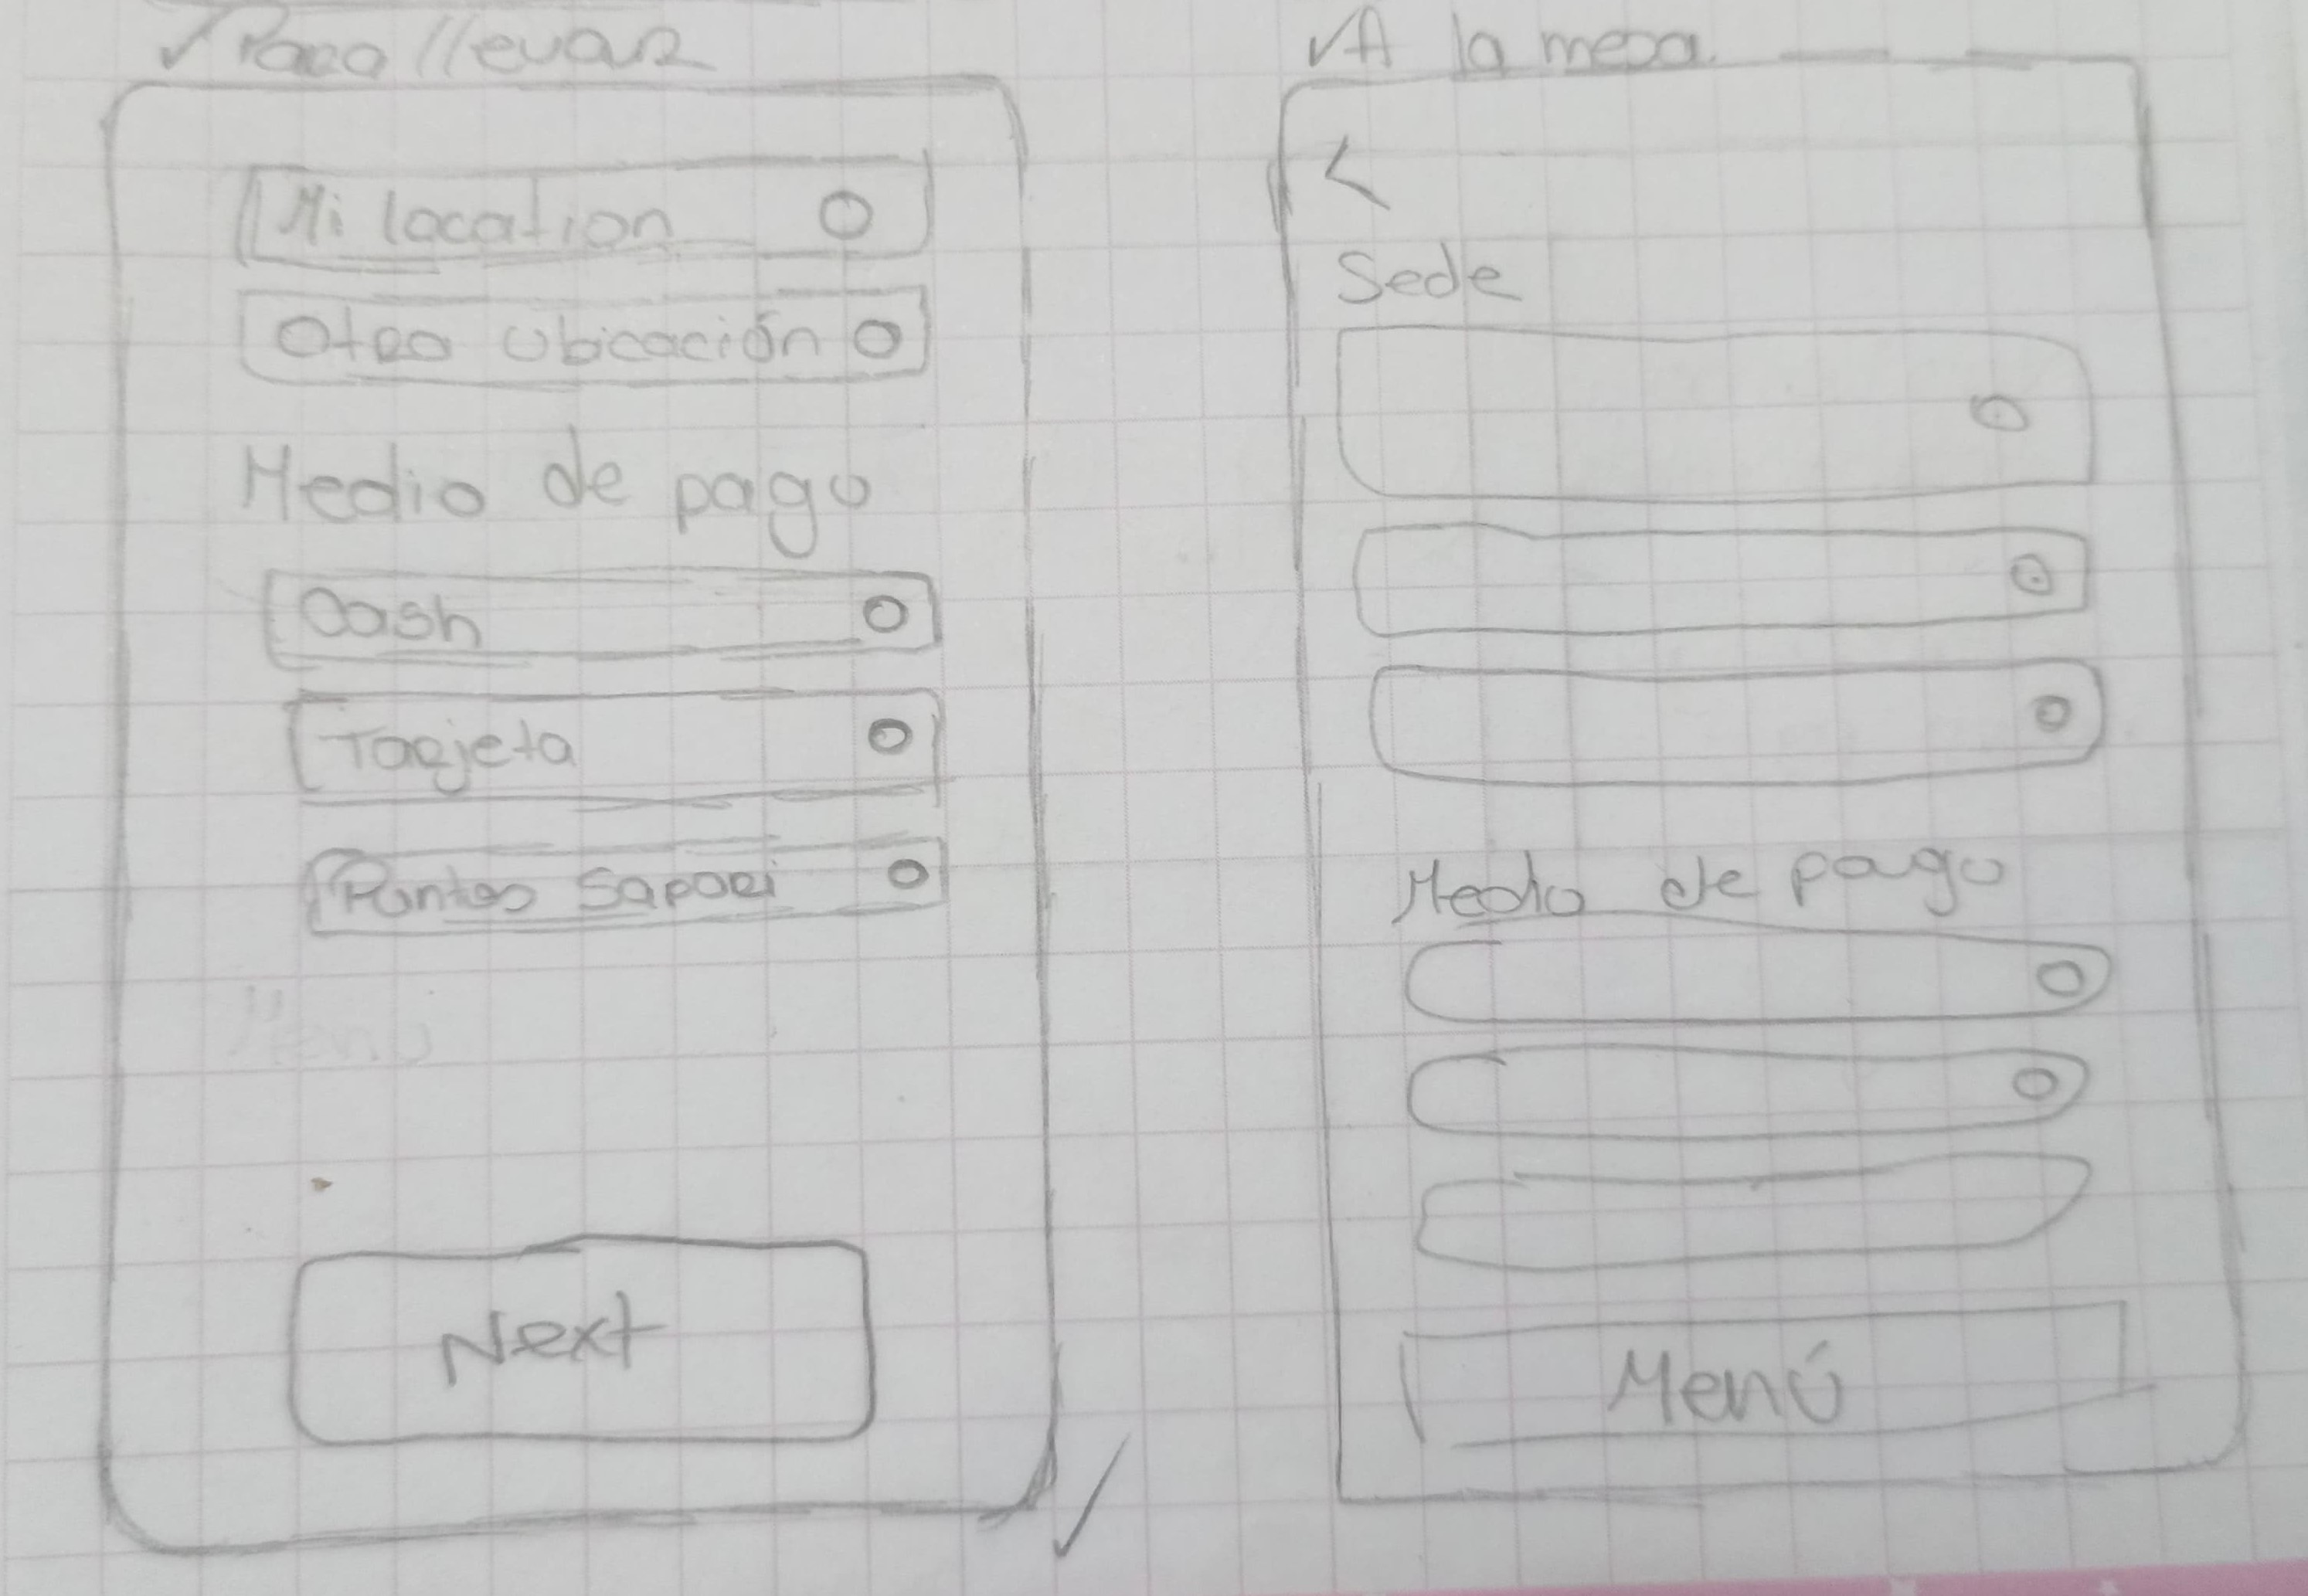 ✓Para llevar
Mi location
Otra Ubicación
Medio de pago
Cash
Tarjeta
Puntos Sapori
Menú
Next
✓A la mesa
<
Sede
Medio de pago
Menú